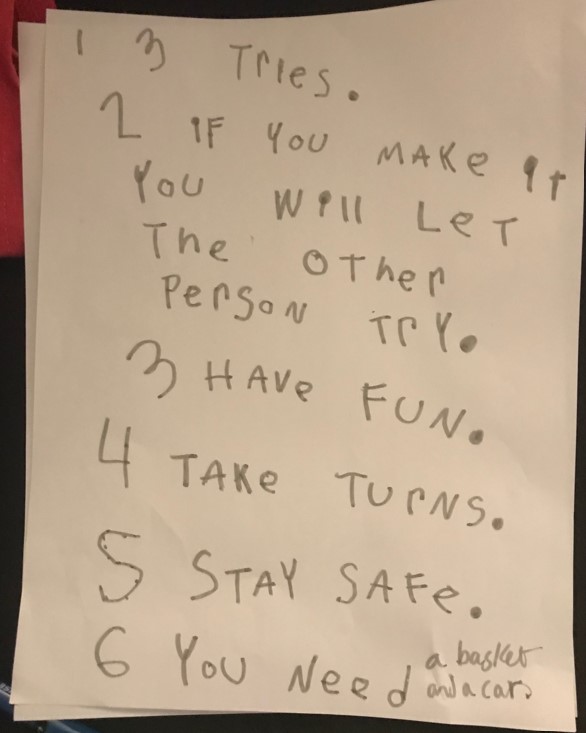 1 3 Tries.
2 IF YOU MAKE It
YOU Will LeT
The OTher
Person TrY.
3 HAVe FUN.
4 TAKe TUrNS.
5 STAY SAFe.
6 YOU Need a basket
and a car.